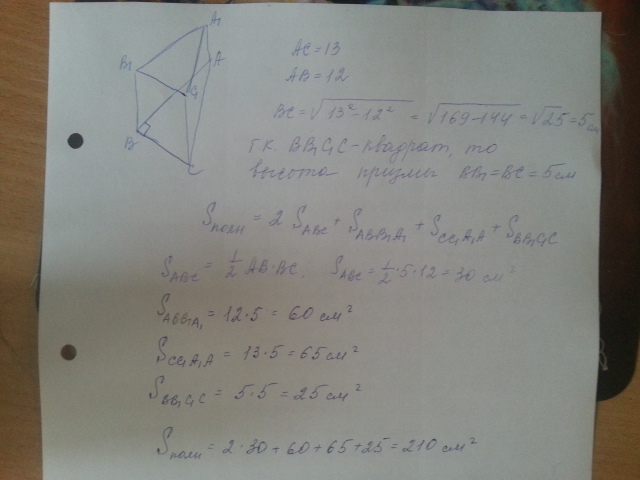 A₁
B₁
A
C₁
B
C
AC = 13
AB = 12
BC = √13² - 12² = √169 - 144 = √25 = 5см
т.к. BB₁C₁C - квадрат, то
высота призмы BB₁ = BC = 5 см
Sполн = 2 S_ABC + S_ABB₁A₁ + S_CC₁A₁A + S_BB₁C₁C
S_ABC = 1/2 AB · BC. S_ABC = 1/2 · 5 · 12 = 30 см²
S_ABB₁A₁ = 12 · 5 = 60 см²
S_CC₁A₁A = 13 · 5 = 65 см²
S_BB₁C₁C = 5 · 5 = 25 см²
Sполн = 2 · 30 + 60 + 65 + 25 = 210 см²